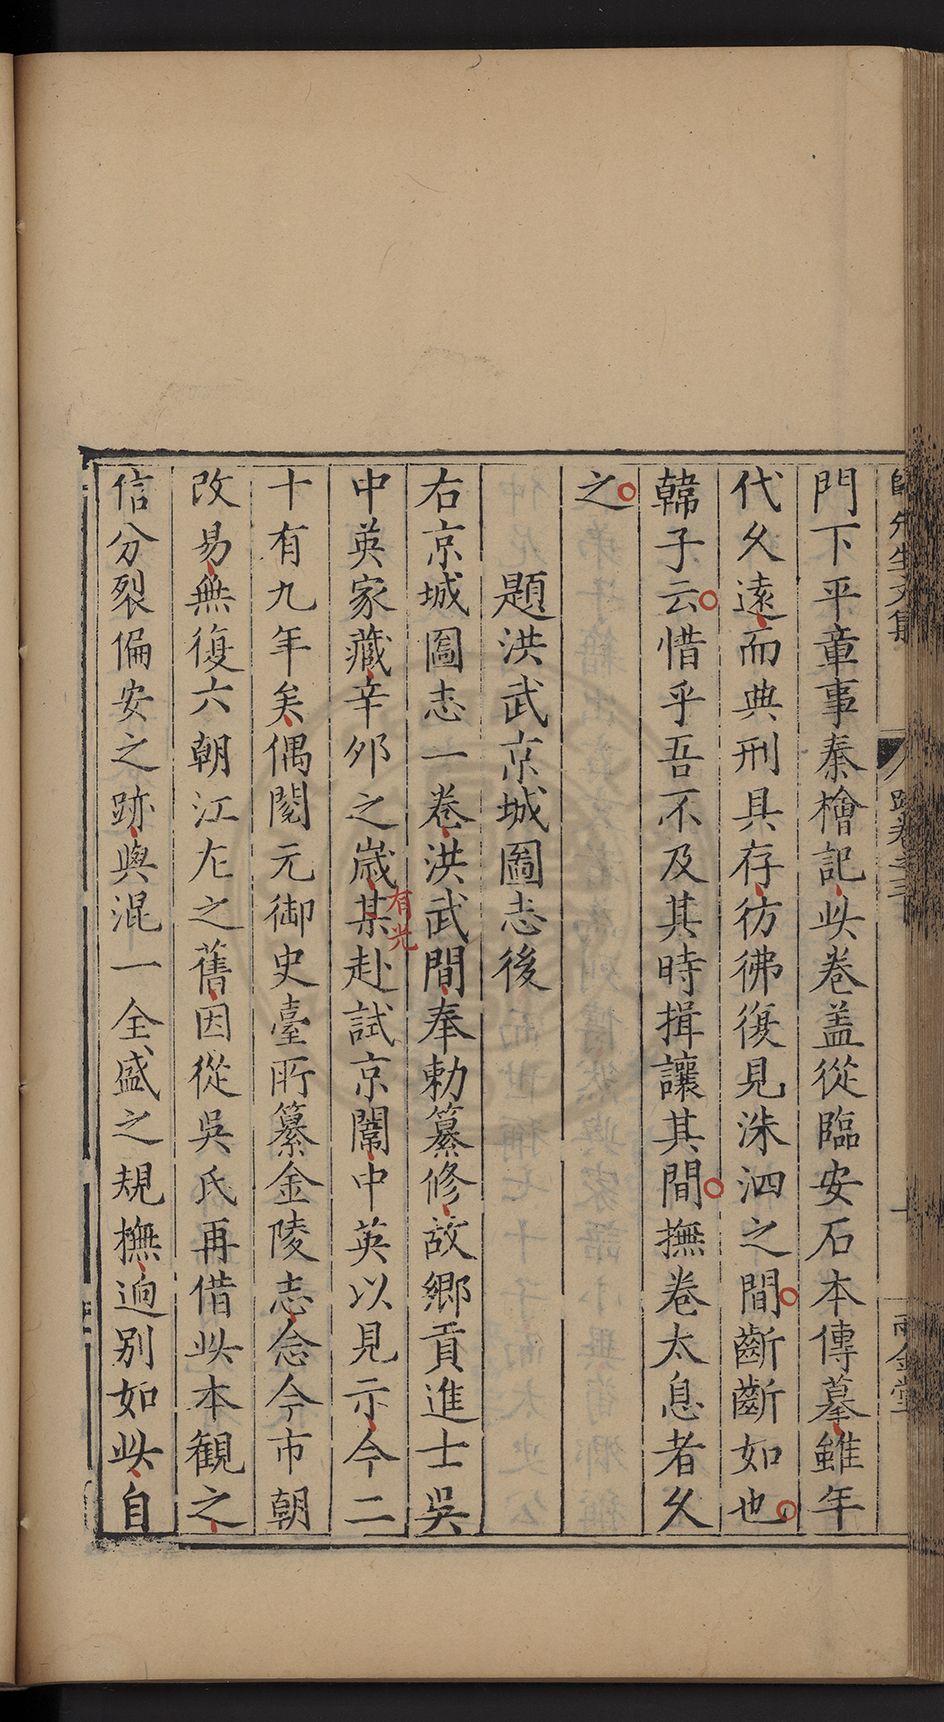 門下平章事秦檜記此卷盖從臨安石本傳摹雖年
代久遠而典刑具存彷彿復見洙泗之間齗齗如也
韓子云惜乎吾不及其時揖讓其間撫卷太息者久
之
題洪武京城圖志後
右京城圖志一卷洪武間奉勅纂修故鄉貢進士吳
中英家藏辛夘之歲某赴試京闈中英以見示今二
有光
十有九年矣偶閱元御史臺所纂金陵志念今市朝
改易無復六朝江左之舊因從吳氏再借此本観之
信分裂偏安之跡與混一全盛之規橅逈別如此自